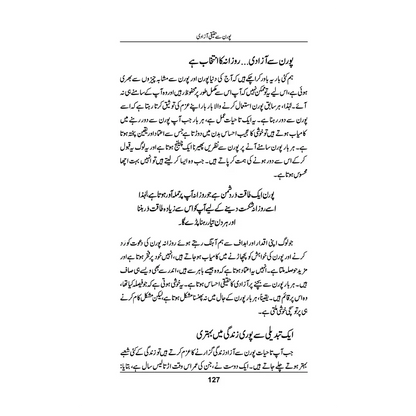 پورن سے حقیقی آزادی
پورن سے آزادی... روزانہ کا انتخاب ہے
ہم کئی بار یہ باور کرا چکے ہیں کہ آج کی دنیا پورن اور پورن سے مشابہ چیزوں سے بھری
ہوئی ہے، اس لیے یہ تو ممکن نہیں کہ آپ اس سے مکمل طور پر محفوظ رہیں اور وہ آپ کے سامنے ہی نہ
آئے۔ لہٰذا، ہر سابق پورن استعمال کرنے والا بار بار اپنے عزم کی توثیق کرتا رہتا ہے کہ اسے
پورن سے دور رہنا ہے۔ یہ ایک تاحیات عمل ہے، ہر بار جب آپ پورن سے دور رہنے میں
کامیاب ہوتے ہیں تو خوشی کا عجیب احساس بدن میں دوڑتا ہے جس سے اعتماد اور یقین پختہ ہوتا
ہے۔ ہر بار پورن سامنے آنے پر پورن سے نظریں پھیرنا ایک چیلنج ہوتا ہے اور یہ لوگ یہ قبول
کرکے اس سے دور ہونے کی ہمت کر پاتے ہیں۔ جب وہ ایسا کر لیتے ہیں تو انہیں بہت اچھا
محسوس ہوتا ہے۔
پورن ایک طاقت ور دشمن ہے جو روزانہ آپ پر حملہ آور ہوتا ہے لہٰذا
اسے روزانہ شکست دینے کے لیے آپ کو اس سے زیادہ طاقت ور بننا
اور ہر دن تیار رہنا پڑے گا۔
جو لوگ اپنی اقدار اور اہداف سے ہم آہنگ رہتے ہوئے روزانہ پورن کی دعوت کو رد
کرنے اور پورن کی خواہش کو پچھاڑنے میں کامیاب ہو جاتے ہیں، انہیں خود پر فخر ہوتا ہے اور
مزید حوصلہ ملتا ہے۔ انہیں یہ اعتماد ہوتا ہے کہ وہ جیسے باہر سے ہیں، اندر سے بھی ویسے ہی صاف
ہیں۔ ہر بار پورن سے بچنے پر آزادی کا حقیقی احساس ہوتا ہے۔ یہ خوشی ہوتی ہے کہ جو فیصلہ کیا تھا،
وہ اس پر قائم ہیں۔ یقیناً، ہر بار پورن کے جال میں نہ پھنسنا مشکل ہوتا ہے، لیکن مشکل کام کرنے
ہی پر تو سچی خوشی ملتی ہے۔
ایک تبدیلی سے پوری زندگی میں بہتری
جب آپ تاحیات پورن سے آزاد زندگی گزارنے کا عزم کرتے ہیں تو زندگی کے کئی شعبے
بہتر ہوتے چلے جاتے ہیں۔ ایک دوست نے، جن کی عمر اس وقت اڑتالیس سال ہے، بتایا:
127